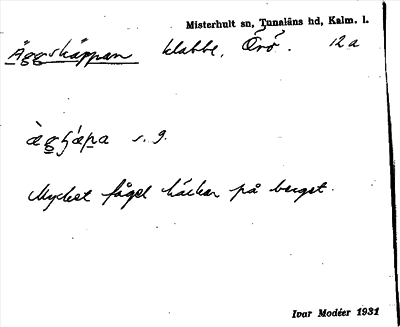 Misterhult sn, Tunaläns hd, Kalm. l.
Äggskäppan klabbe, Örö. 12a
s. g.
Mycket fågel häckar på berget.
Ivar Modéer 1931